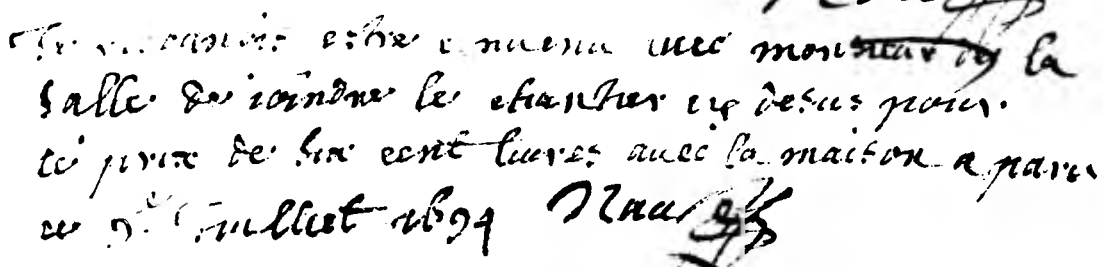 Je reconnois estre convenu avec monsieur de la
Salle de joindre le chantier cy desus pour
le prix de six cent livres avec la maison a paris
ce 9e Juillet 1694